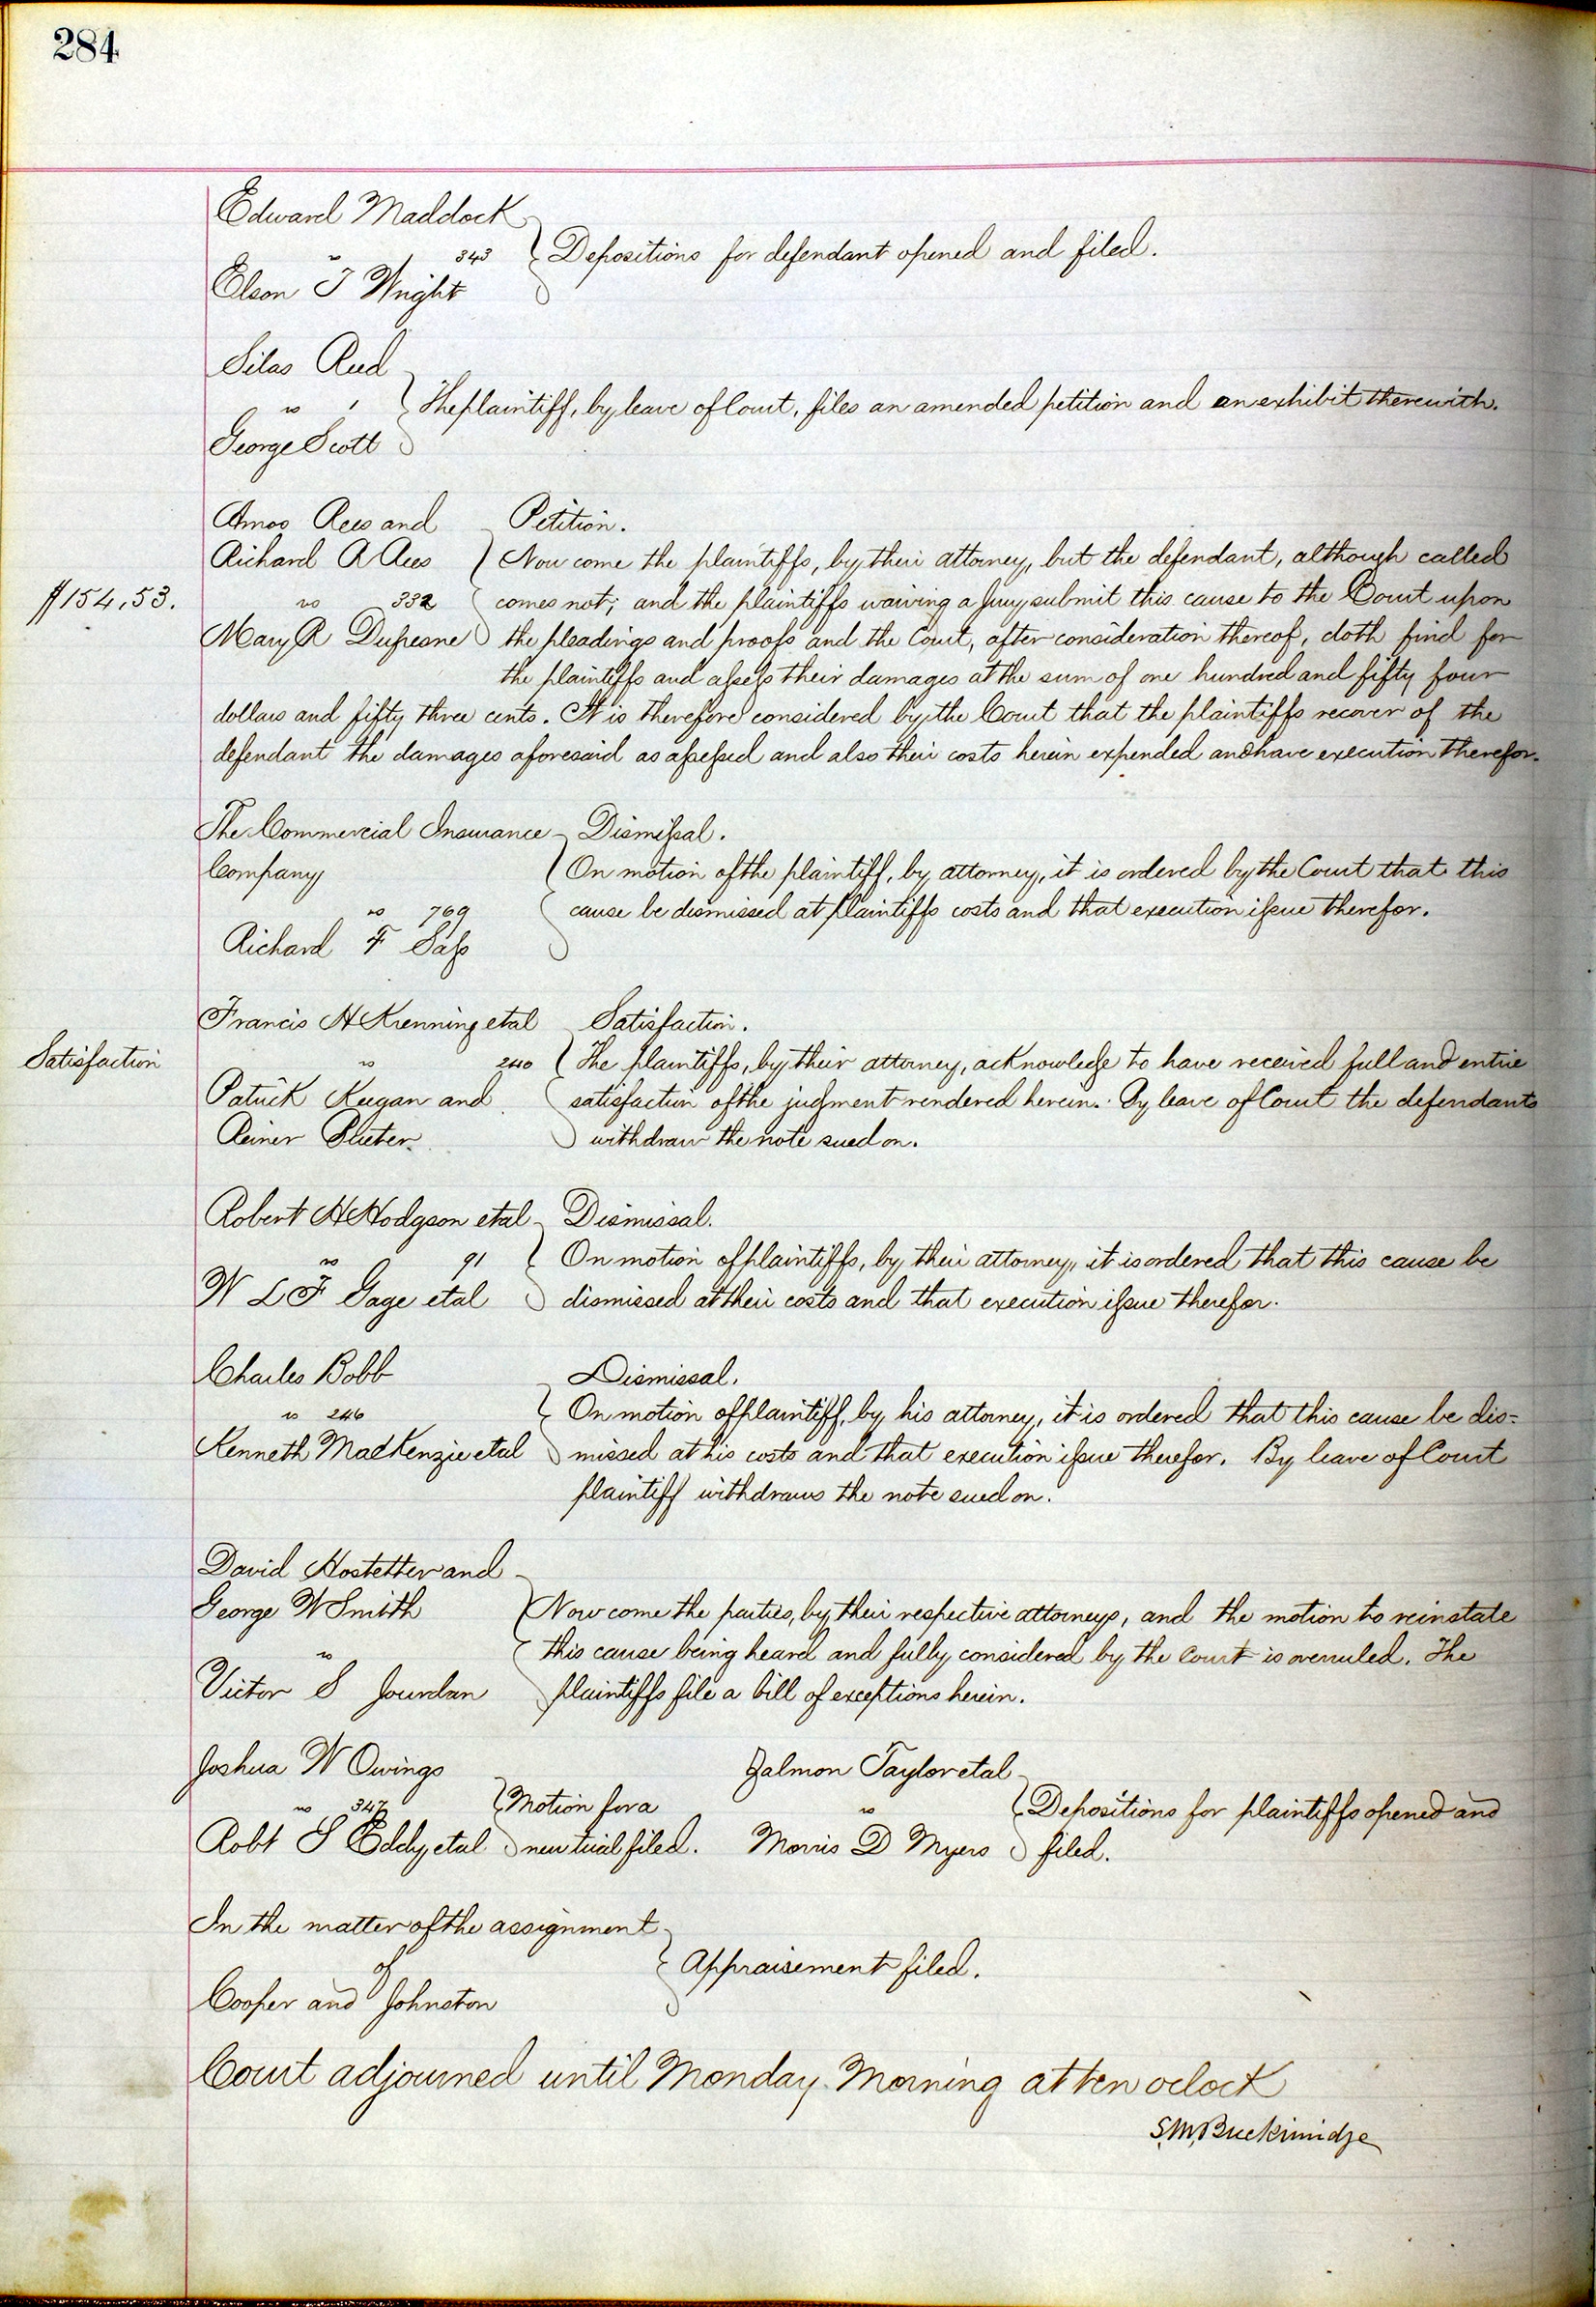 284
Edward Maddock
vs 343
Elson T Wright
Depositions for defendant opened and filed.
Silas Reed
vs 1
George Scott
The plaintiff, by leave of Court, files an amended petition and an exhibit therewith.
Amos Rees and
Richard A Rees
$154,53.
vs 332
Mary R Dufresne
Petition.
Now come the plaintiffs, by their attorney, but the defendant, although called
comes not; and the plaintiffs waiving a jury submit this cause to the Court upon
the pleadings and proofs and the Court, after consideration thereof, doth find for
the plaintiffs and assess their damages at the sum of one hundred and fifty four
dollars and fifty three cents. It is therefore considered by the Court that the plaintiffs recover of the
defendant the damages aforesaid as assessed and also their costs herein expended and have execution therefor.
The Commercial Insurance
Company
vs 769
Richard F Sass
Dismissal.
On motion of the plaintiff, by attorney, it is ordered by the Court that this
cause be dismissed at plaintiffs costs and that execution issue therefor.
Satisfaction
Francis H Krenning etal
vs 240
Patrick Keegan and
Reiner
Satisfaction.
The plaintiffs, by their attorney, acknowledge to have received full and entire
satisfaction of the judgment rendered herein. By leave of Court the defendants
withdraw the note sued on.
Robert H Hodgson etal
vs 91
W L F Gage etal
Dismissal.
On motion of plaintiffs, by their attorney, it is ordered that this cause be
dismissed at their costs and that execution issue therefor.
Charles Bobb
vs 246
Kenneth MacKenzie etal
Dismissal.
On motion of plaintiff, by his attorney, it is ordered that this cause be dis-
missed at his costs and that execution issue therefor. By leave of Court
plaintiff withdraws the note sued on.
David Hostetter and
George W Smith
vs
Victor S Jourdan
Now come the parties, by their respective attorneys, and the motion to reinstate
this cause being heard and fully considered by the Court is overruled. The
plaintiffs file a bill of exceptions herein.
Joshua W Owings
vs 347
Robt S Eddy, etal
Motion for a
new trial filed.
Zalmon Taylor etal
vs
Morris D Myers
Depositions for plaintiffs opened and
filed.
In the matter of the assignment
of
Cooper and Johnston
Appraisement filed.
Court adjourned until Monday Morning at ten oclock
S.M. Breckinridge